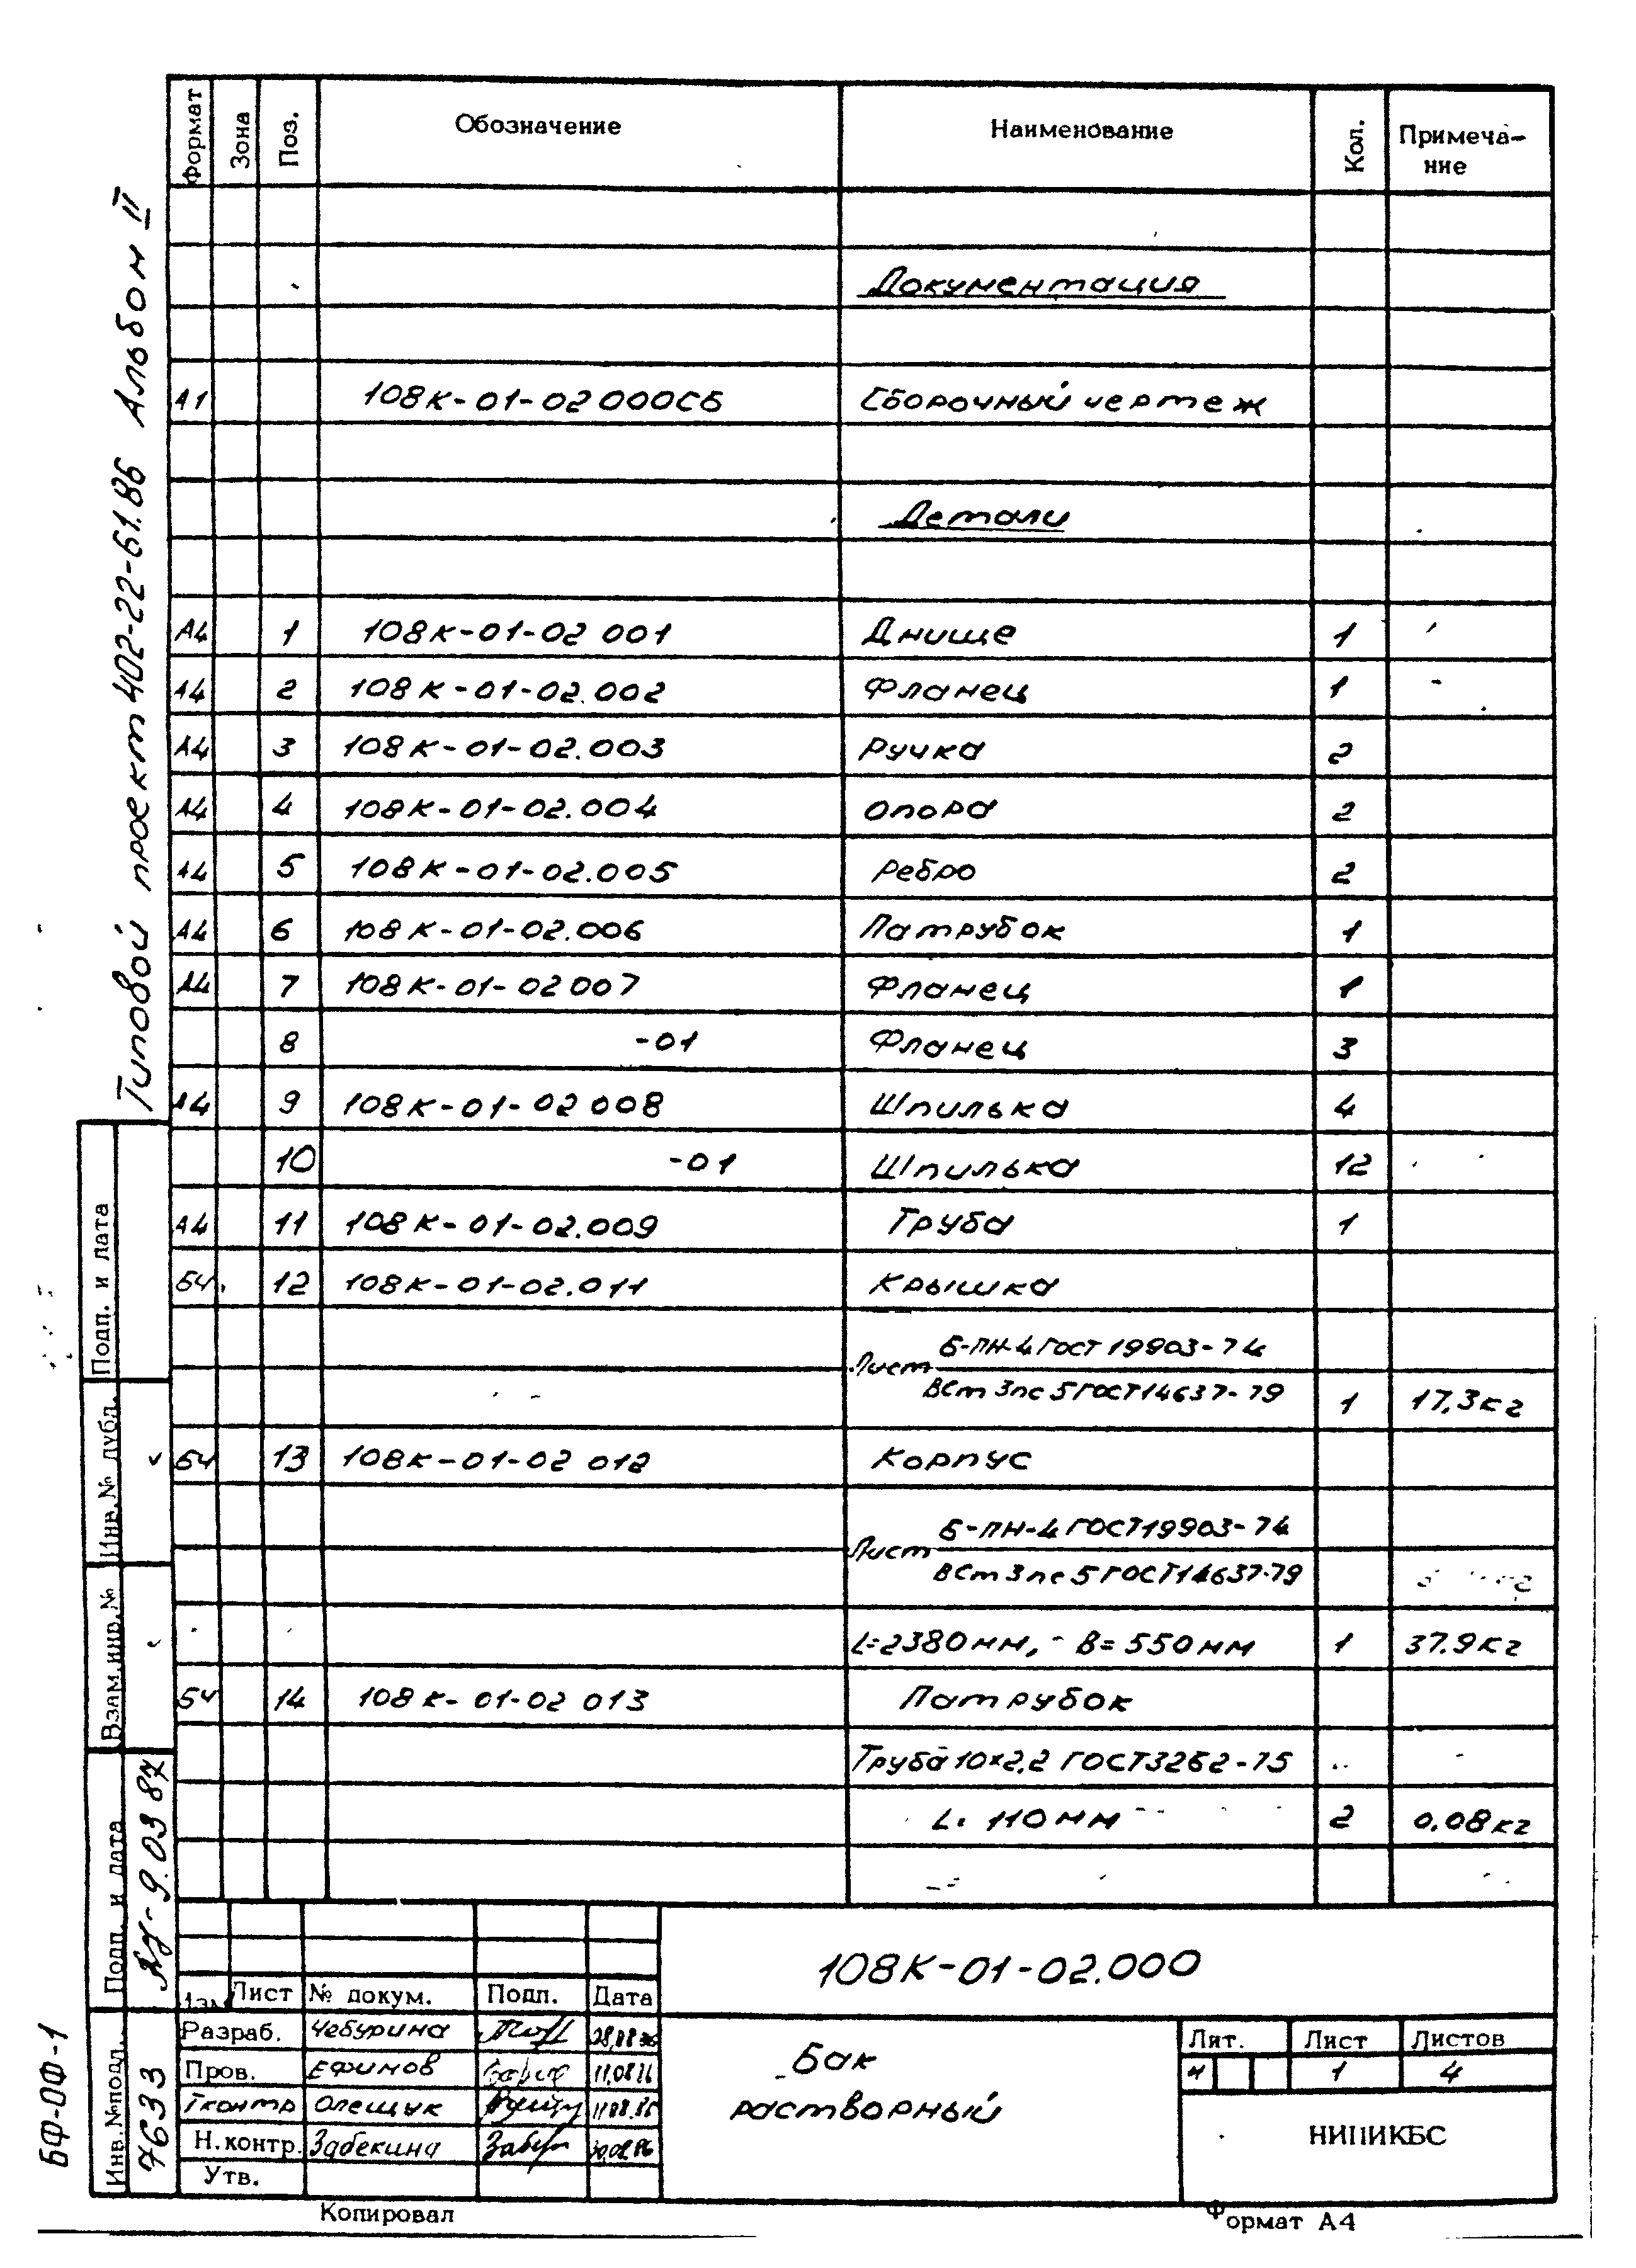 Формат Зона Поз. Обозначение Наименование Кол. Примеча-
ние
Документация
А1 108К-01-02 000СБ Сборочный чертеж
Детали
А4 1 108К-01-02 001 Днище 1
А4 2 108К-01-02.002 Фланец 1
А4 3 108К-01-02.003 Ручка 2
А4 4 108К-01-02.004 Опора 2
А4 5 108К-01-02.005 Ребро 2
А4 6 108К-01-02.006 Патрубок 1
А4 7 108К-01-02 007 Фланец 1
8 -01 Фланец 3
А4 9 108К-01-02 008 Шпилька 4
10 -01 Шпилька 12
А4 11 108К-01-02.009 Труба 1
БЧ. 12 108К-01-02.011 Крышка
Лист Б-ПН-4 ГОСТ 19903-74
ВСт 3пс 5 ГОСТ 14637-79 1 17,3кг
БЧ 13 108К-01-02 012 Корпус
Лист Б-ПН-4 ГОСТ 19903-74
ВСт 3пс 5 ГОСТ 14637-79
L=2380мм, В=550мм 1 37.9кг
БЧ 14 108К-01-02 013 Патрубок
Труба 10×2,2 ГОСТ 3262-75
L. 110мм 2 0,08кг
108К-01-02.000
Изм Лист № докум. Подп. Дата
Разраб. Чебурина
Пров. Ефимов 11,08
Тконтр Олещук
Н.контр. Забекина
Утв.
Бак
растворный
Лит. Лист Листов
1 4
НИПИКБС
Копировал Формат А4
Типовой проект 402-22-61.86 Альбом II
Подп. и дата
Инв.№ дубл.
Взам.инв.№
Подп. и дата 9.03 87
Инв.№подл. 7633
БФ-ОФ-1